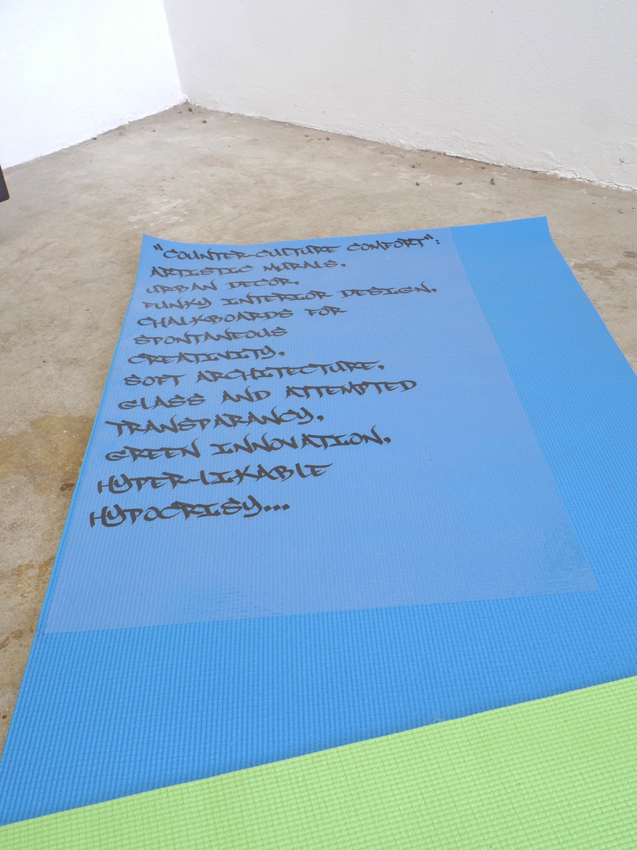 "COUNTER-CULTURE COMFORT":
ARTISTIC MURALS.
URBAN DECOR.
FUNKY INTERIOR DESIGN.
CHALKBOARDS FOR
SPONTANEOUS
CREATIVITY.
SOFT ARCHITECTURE.
GLASS AND ATTEMPTED
TRANSPARANCY.
GREEN INNOVATION.
HYPER-LIKABLE
HYPOCRISY...